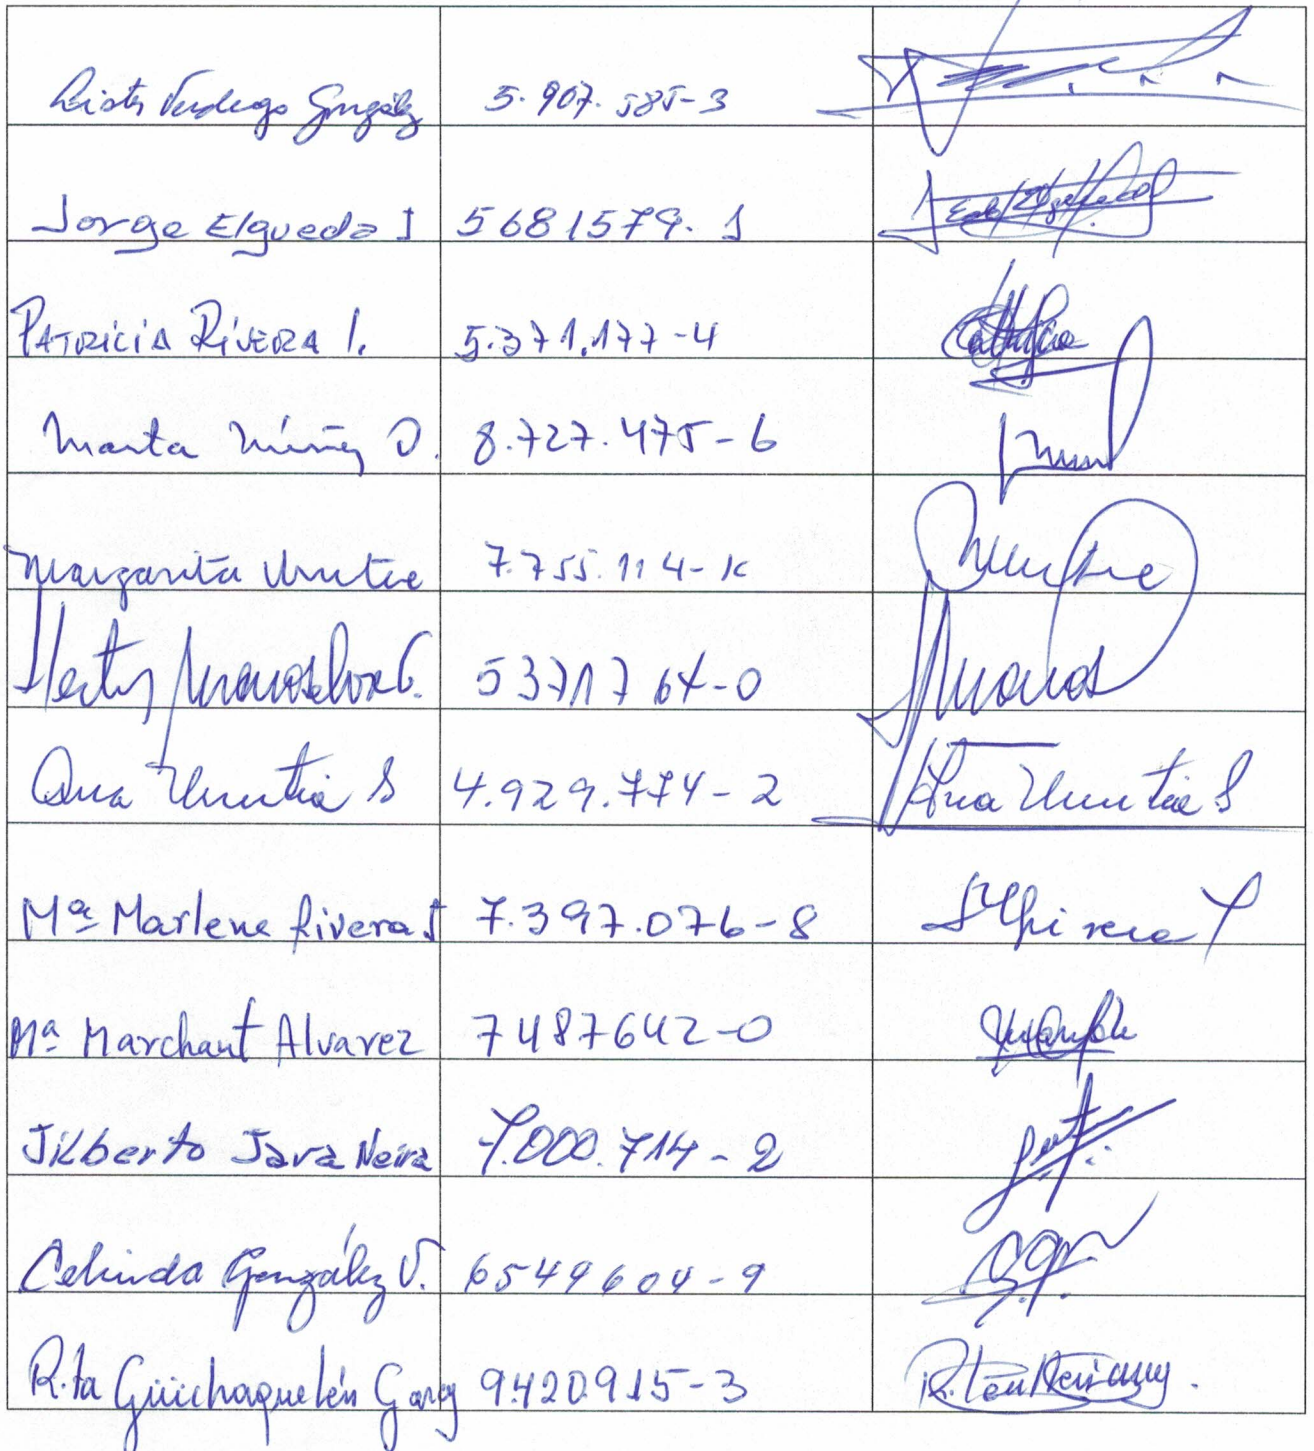 Verdugo González 5.907.585-3
Jorge Elgueda J 5681579. 1
PATRICIA RIVERA I. 5.371.177-4
Marta Núñez O. 8.727.475-6
Margarita Urrutia 7.755.114-K
Hector 5371764-0
Ana Urrutia S 4.929.774-2 Ana Urrutia S
Mª Marlene Rivera J 7.397.076-8
Mª Marchant Alvarez 7487642-0
Jilberto Jara Neira 7.000.714-2
Celinda González V. 6549604-9
Rita Güichaquelén Garay 9420915-3